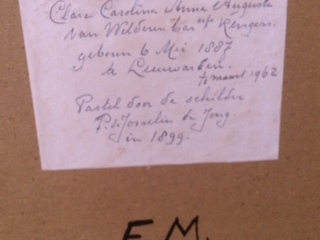 Clara Caroline Anne Auguste
van Welderen bar sse Rengers.
geboren 6 Mei 1887
te Leeuwarden.
maart 1962
Pastel door de schilder
P. de Josselin de Jong.
in 1899.
F.M.